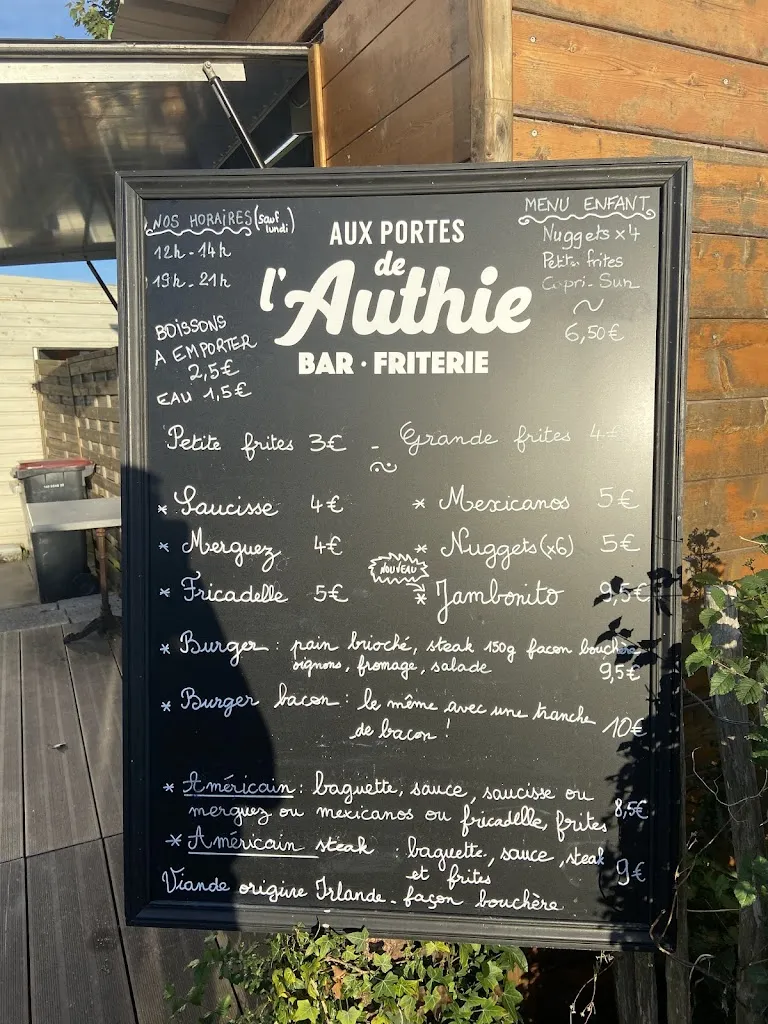 NOS HORAIRES (sauf lundi)
12h - 14h
19h - 21h
BOISSONS
A EMPORTER
2,5€
EAU 1,5€
AUX PORTES
de
l'Authie
BAR · FRITERIE
MENU ENFANT
Nuggets x4
Petite frites
Capri-Sun
~
6,50€
Petite frites 3€ - Grande frites 4€
~
* Saucisse 4€ * Mexicanos 5€
* Merguez 4€ * Nuggets (x6) 5€
NOUVEAU
* Fricadelle 5€ * Jambonito 9,5€
* Burger : pain brioché, steak 150g facon bouchère
oignons, fromage, salade 9,5€
* Burger bacon : le même avec une tranche
de bacon ! 10€
* Américain : baguette, sauce, saucisse ou
merguez ou mexicanos ou fricadelle, frites 8,5€
* Américain steak : baguette, sauce, steak
et frites 9€
Viande origine Irlande - façon bouchère